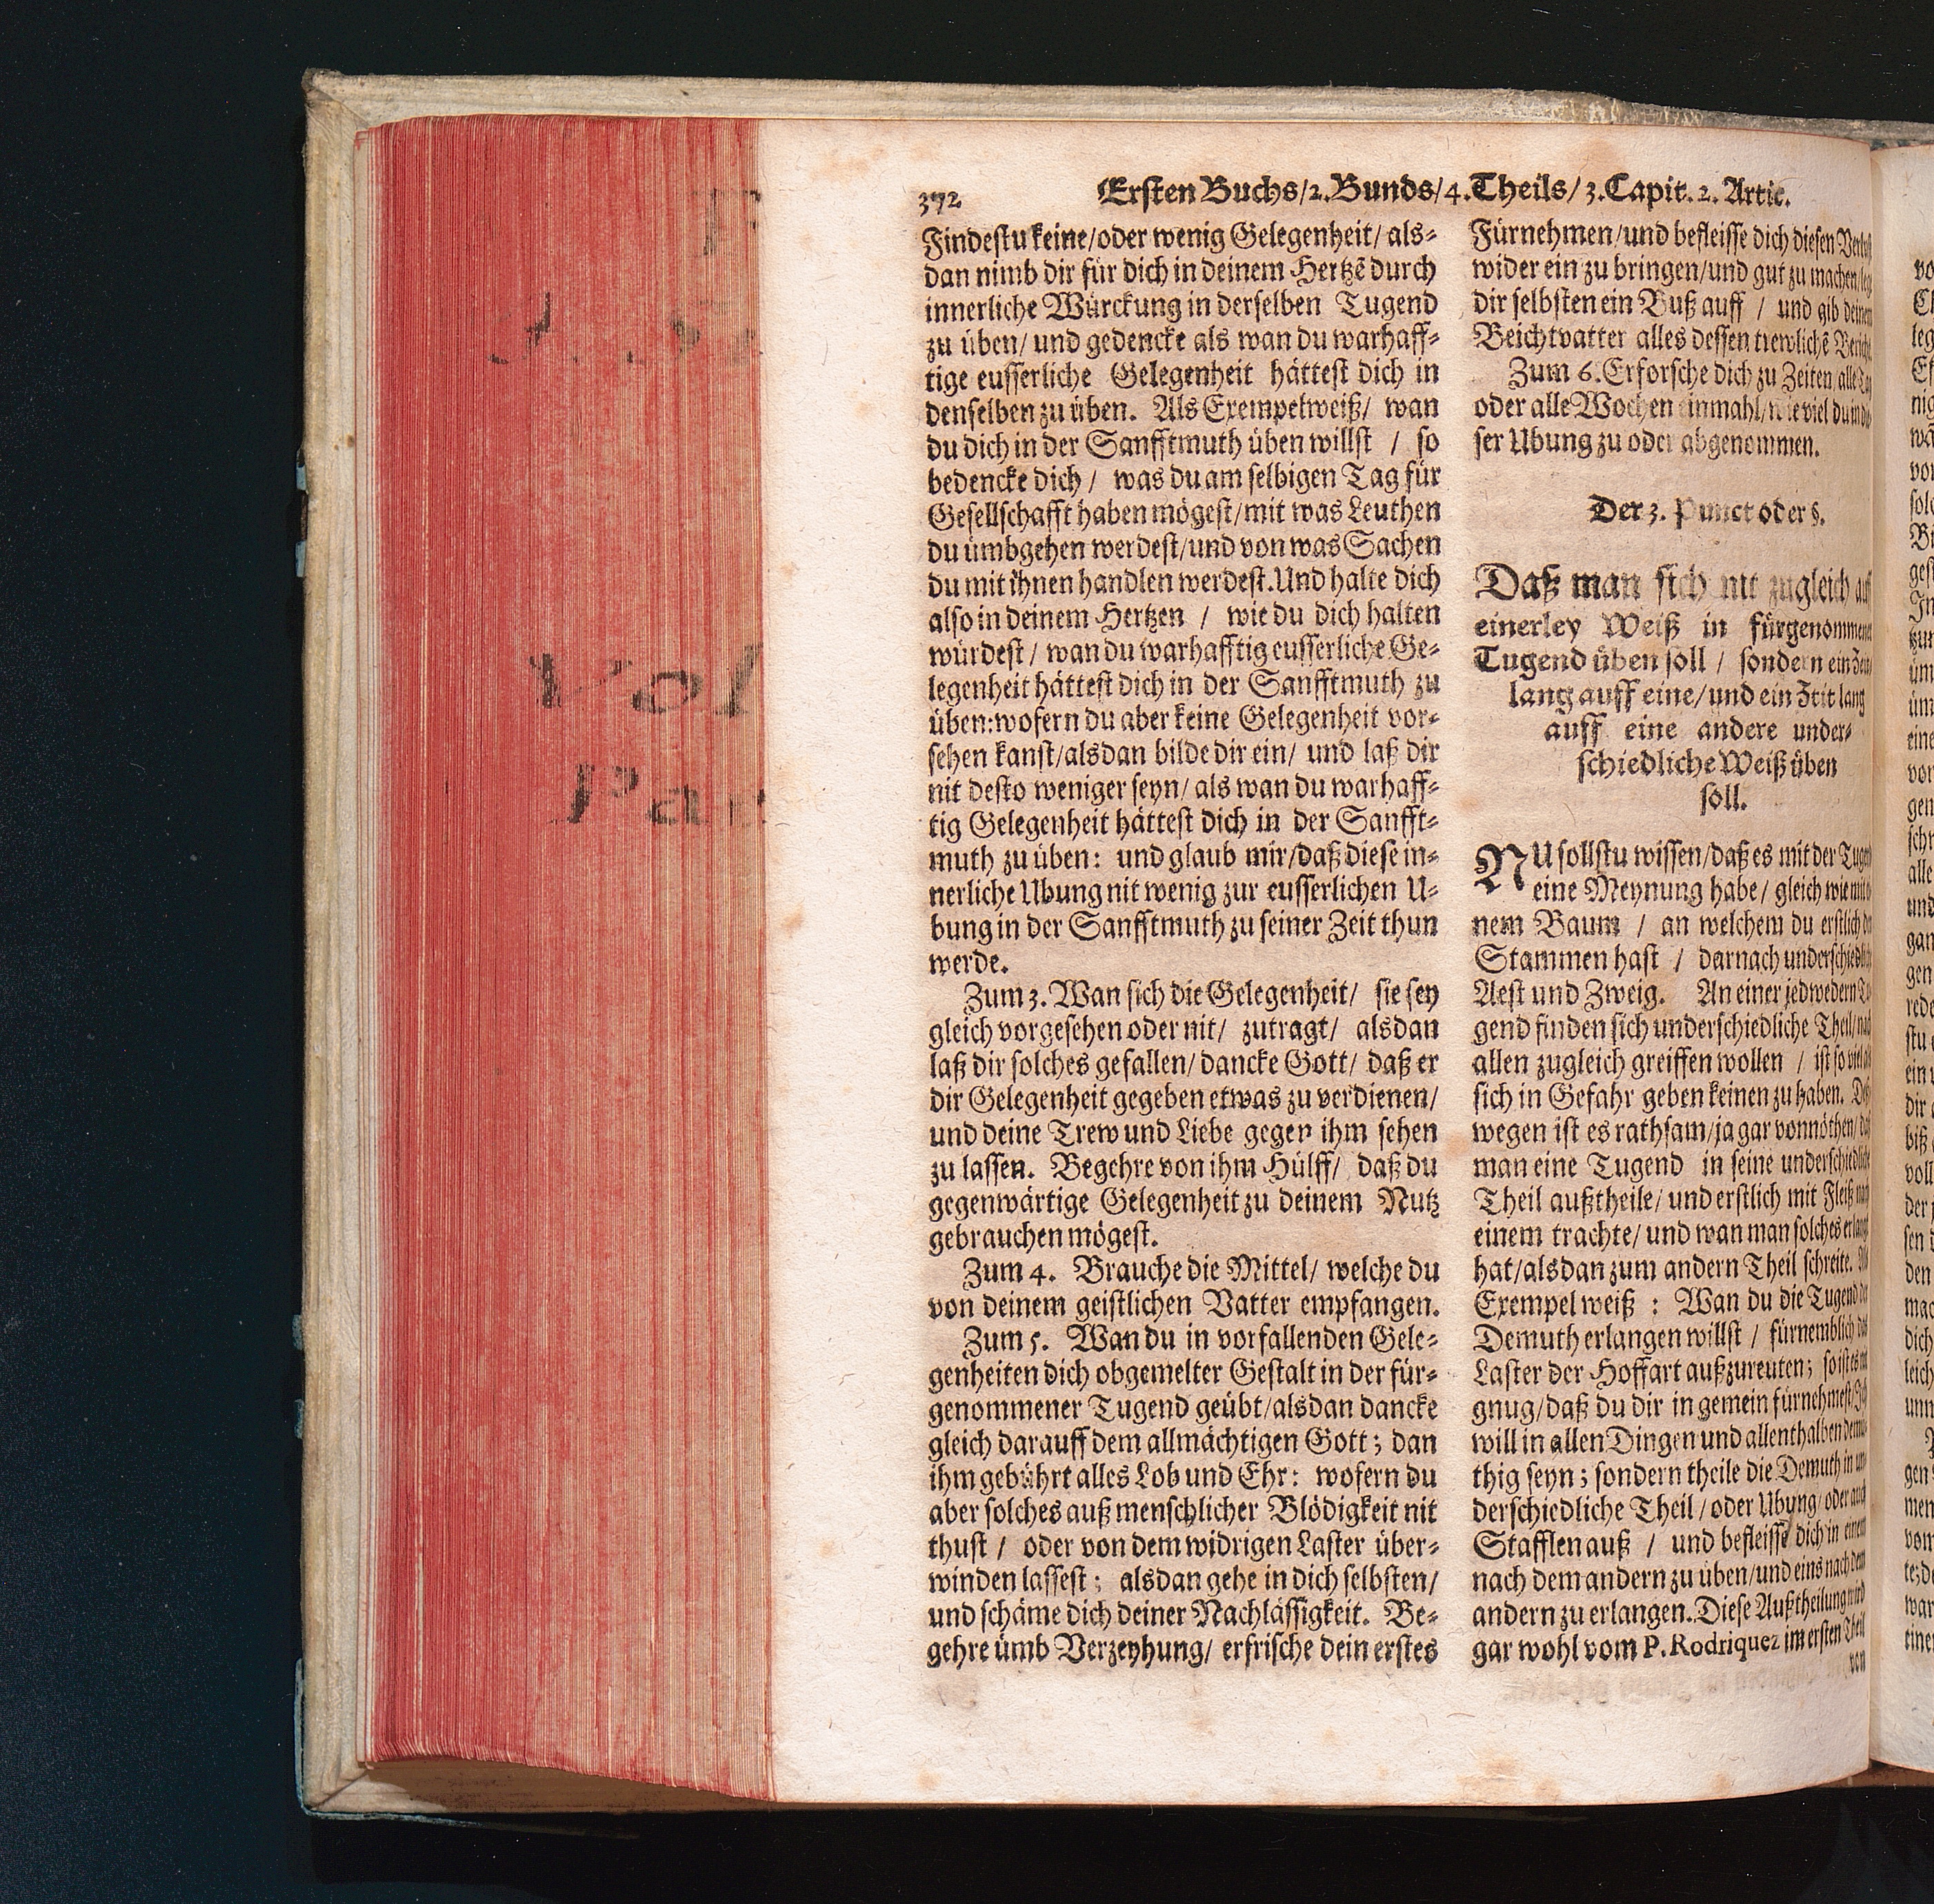 372
Ersten Buchs/2.Bunds/4.Theils/3.Capit.2.Artic.
Findestu keine/oder wenig Gelegenheit/ als-
dan nimb dir für dich in deinem Hertzē durch
innerliche Würckung in derselben Tugend
zu üben/ und gedencke als wan du warhaff-
tige eusserliche Gelegenheit hättest dich in
denselben zu üben. Als Exempelweiß/ wan
du dich in der Sanfftmuth üben willst / so
bedencke dich / was du am selbigen Tag für
Gesellschafft haben mögest/mit was Leuthen
du ümbgehen werdest/und von was Sachen
du mit ihnen handlen werdest. Und halte dich
also in deinem Hertzen / wie du dich halten
würdest / wan du warhafftig eusserliche Ge-
legenheit hättest dich in der Sanfftmuth zu
üben: wofern du aber keine Gelegenheit vor-
sehen kanst/alsdan bilde dir ein/ und laß dir
nit desto weniger seyn/ als wan du warhaff-
tig Gelegenheit hättest dich in der Sanfft-
muth zu üben: und glaub mir/daß diese in-
nerliche Ubung nit wenig zur eusserlichen U-
bung in der Sanfftmuth zu seiner Zeit thun
werde.
Zum 3. Wan sich die Gelegenheit/ sie sey
gleich vorgesehen oder nit/ zutragt/ alsdan
laß dir solches gefallen/ dancke Gott/ daß er
dir Gelegenheit gegeben etwas zu verdienen/
und deine Trew und Liebe gegen ihm sehen
zu lassen. Begehre von ihm Hülff/ daß du
gegenwärtige Gelegenheit zu deinem Nutz
gebrauchen mögest.
Zum 4. Brauche die Mittel/ welche du
von deinem geistlichen Vatter empfangen.
Zum 5. Wan du in vorfallenden Gele-
genheiten dich obgemelter Gestalt in der für-
genommener Tugend geübt/alsdan dancke
gleich darauff dem allmächtigen Gott; dan
ihm gebührt alles Lob und Ehr: wofern du
aber solches auß menschlicher Blödigkeit nit
thust / oder von dem widrigen Laster über-
winden lassest; alsdan gehe in dich selbsten/
und schäme dich deiner Nachlässigkeit. Be-
gehre ümb Verzeyhung/ erfrische dein erstes
Fürnehmen/und befleisse dich diesen
wider ein zu bringen/und gut zu machen/
dir selbsten ein Buß auff / und gib deinem
Beichtvatter alles dessen trewlichē
Zum 6. Erforsche dich zu Zeiten
oder alle Wochen einmahl/wie viel du in
ser Ubung zu oder abgenommen.
Der 3. Punct oder §.
Daß man sich nit zugleich auff
einerley Weiß in fürgenommener
Tugend üben soll / sondern ein Zeit
lang auff eine/und ein Zeit lang
auff eine andere under-
schiedliche Weiß üben
soll.
NU sollstu wissen/daß es mit der Tugend
eine Meynung habe/ gleich wie mit
nem Baum / an welchem du erstlich den
Stammen hast / darnach underschiedliche
Aest und Zweig. An einer jedwedern Tu-
gend finden sich underschiedliche Theil/
allen zugleich greiffen wollen / ist so viel als
sich in Gefahr geben keinen zu haben.
wegen ist es rathsam/ja gar vonnöthen/
man eine Tugend in seine underschiedliche
Theil außtheile/ und erstlich mit Fleiß nach
einem trachte/ und wan man solches erlangt
hat/alsdan zum andern Theil schreite.
Exempelweiß : Wan du die Tugend der
Demuth erlangen willst / fürnemblich das
Laster der Hoffart außzureuten; so ist es nit
gnug/daß du dir in gemein fürnehmest/Ich
will in allen Dingen und allenthalben demü-
thig seyn; sondern theile die Demuth in un-
derschiedliche Theil/oder Ubung/oder auch
Stafflen auß / und befleisse dich in einem
nach dem andern zu üben/und eins nach dem
andern zu erlangen. Diese Außtheilung wird
gar wohl vom P. Rodriquez im ersten Theil
von